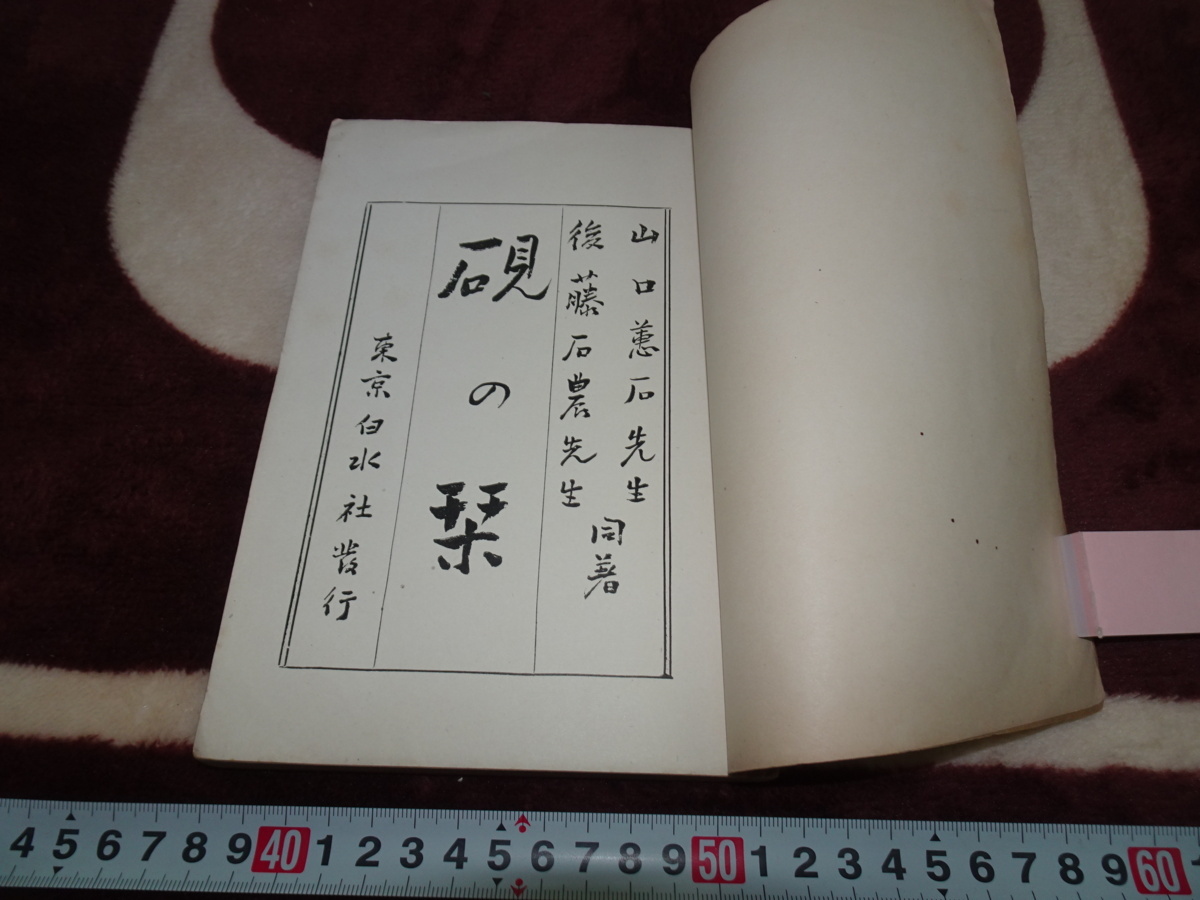 山口蕙石先生
後藤石農先生
同著
硯の栞
東京白水社発行
4 5 6 7 8 9 40 1 2 3 4 5 6 7 8 9 50 1 2 3 4 5 6 7 8 9 60